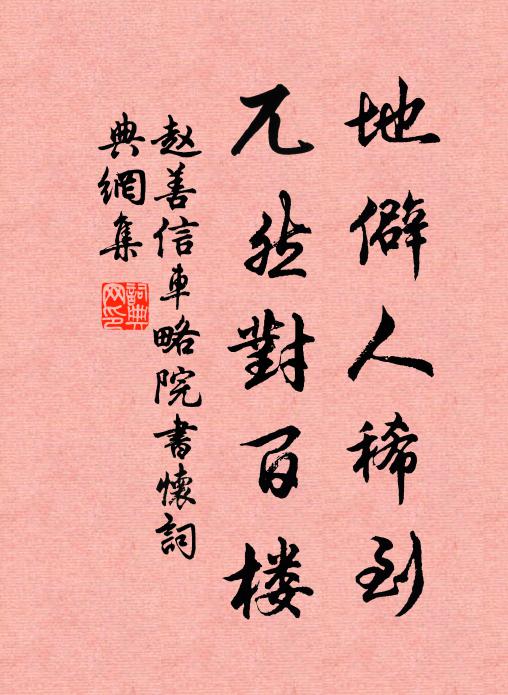 地僻人稀到
兀然對百楼
赵善信車略院書懷詞
典網集
詞典
网印